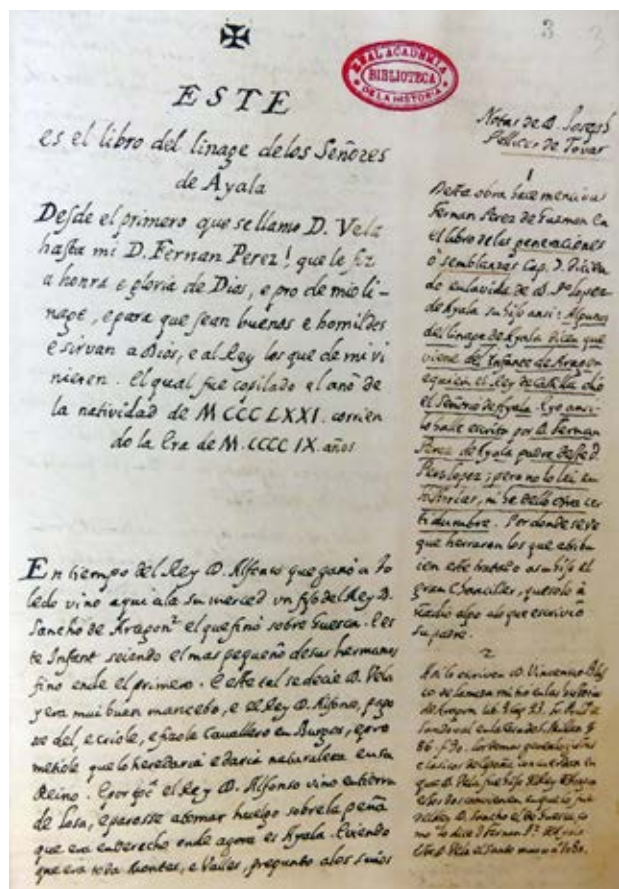 3
REAL ACADEMIA
BIBLIOTECA
DE LA HISTORIA
ESTE
es el libro del linage delos Señores
de Ayala
Desde el primero que se llamo D. Vela
hasta mi D. Fernan Perez¹, que le fiz
a honra e gloria de Dios, e pro de mio li-
nage, e para que sean buenos e homildes
e sirvan a Dios, e al Rey los que de mi vi
nieren. El qual fue copilado el ano de
la natividad de MCCCLXXI. corrien
do la Era de M.CCCC IX. años
En tiempo del Rey D. Alfonso que ganó a To
ledo vino aqui ala su merced un fijo del Rey D.
Sancho de Aragon² el que finó sobre Guesca. E es
te Infant seiendo el mas pequeño desus hermanos
fino ende el primero. E este tal se decie D. Vela
y era mui buen mancebo, e el Rey D. Alfonso, pago
se del, e criole, e fizole Cavallero en Burgos, e pro
metiole que lo heredaria e daria naturaleza en su
Reino. E porq̃ el Rey D. Alfonso vino en tierra
de Losa, e parosse a tomar huelgo sobre la peña
que era en derecho onde agora es Ayala. E viendo
que era toda Montes, e Valles, pregunto alos suios
Notas de D. Joseph
Pellicer de Tovar
1
Desta obra hace mencion
Fernan Perez de Guzman en
el libro de las generaciones
ò semblanzas Cap. 7. dicien
do en la vida de D. Pº Lopez
de Ayala su hijo ansi: Algunos
del linage de Ayala dicen que
viene del Infante de Aragon
a quien el Rey de Castilla dio
el Señorio de Ayala. E yo ansi
lo halle escrito por D. Fernan
Perez de Ayala padre deste D.
Pero Lopez; pero no lo lei en
historias, ni he dello otra cer
tidumbre. Por donde se ve
que herraron los que atribu
ien este tratado a su hijo el
gran Chanciller, que solo à
ñadio algo alo que escrivió
su padre.
2
Asi lo escriven D. Vincencio Blas
co de Lanuza en las historias
de Aragon
Sandoval
86.
que D. Vela fue hijo del Rey de Aragon
D. Sancho
mo lo dice D. Fernan Pº